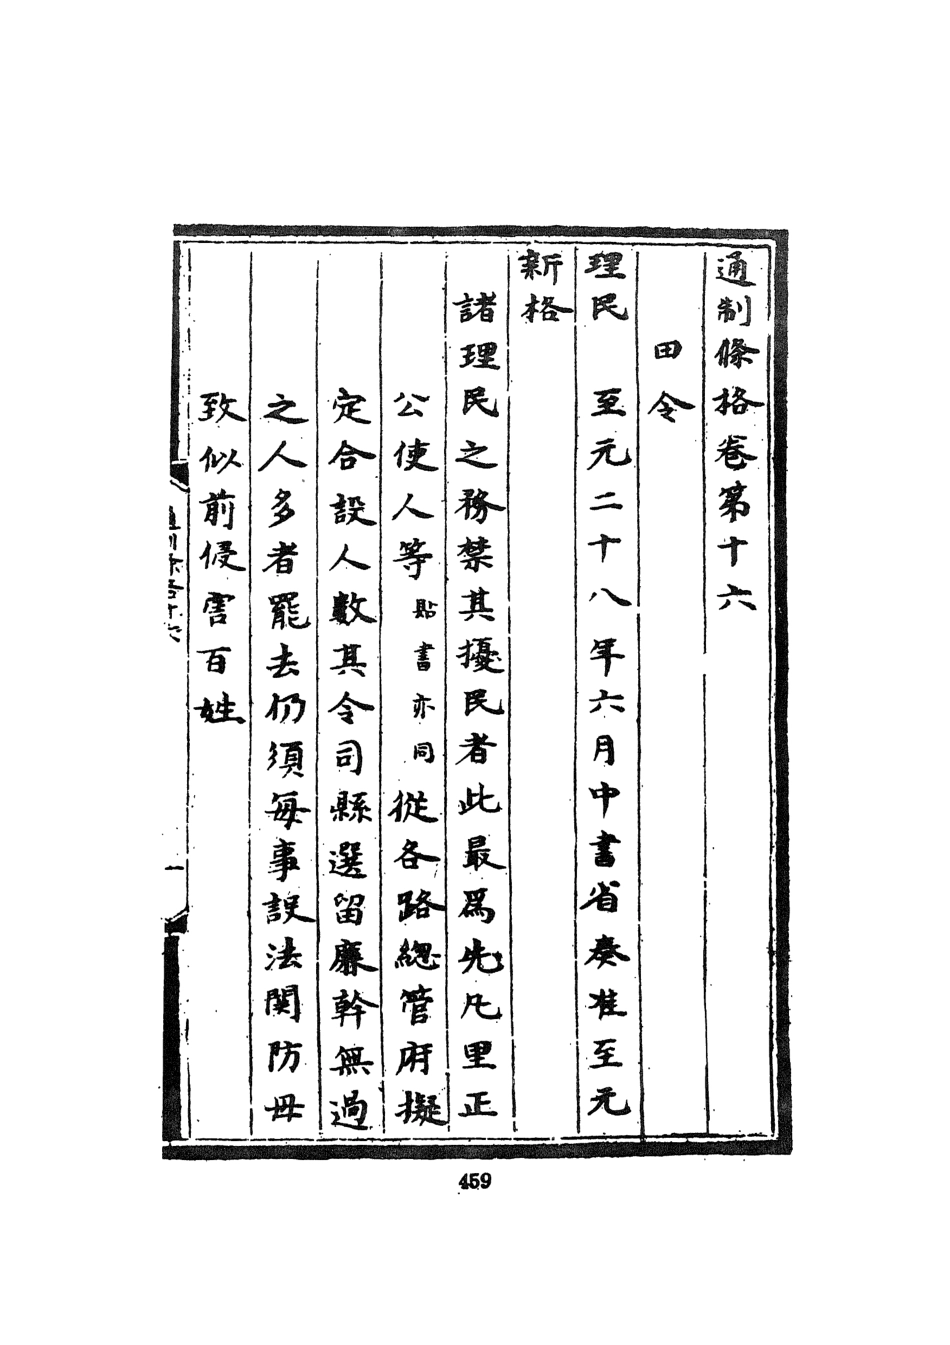 通制條格卷第十六
田令
理民　至元二十八年六月中書省奏准至元
新格
諸理民之務禁其擾民者此最爲先凡里正
公使人等貼書亦同從各路總管府擬
定合設人數其令司縣選留廉幹無過
之人多者罷去仍須每事設法關防毋
致似前侵害百姓
通制條格十六
一
459